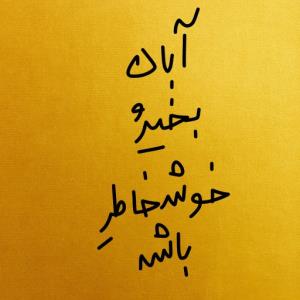 آبان
بخیرُ
خوشخاطرِ
باشه